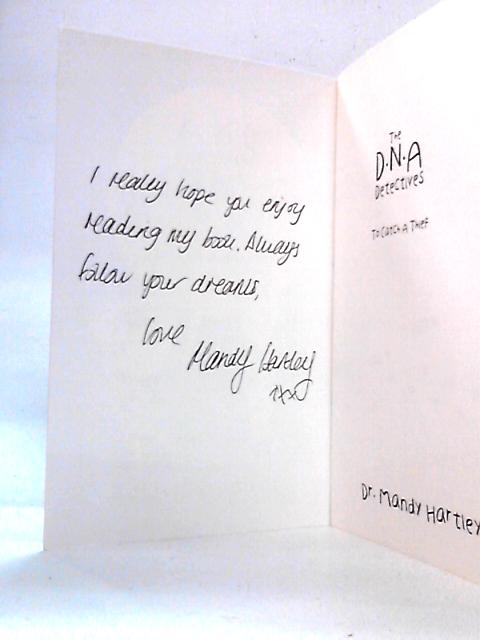 I really hope you enjoy
reading my book. Always
follow your dreams,
love
Mandy Hartley
xxx
The
D.N.A
Detectives
To Catch A Thief
Dr. Mandy Hartley